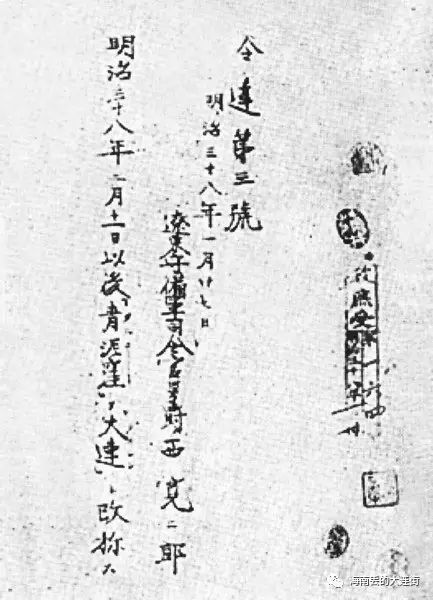 令達第三號
明治三十八年一月廿七日
遼東守備軍司令官男爵西寛二郎
明治三十八年二月十一日以後青泥窪ヲ大連ト改称ス
海南丢的大连街